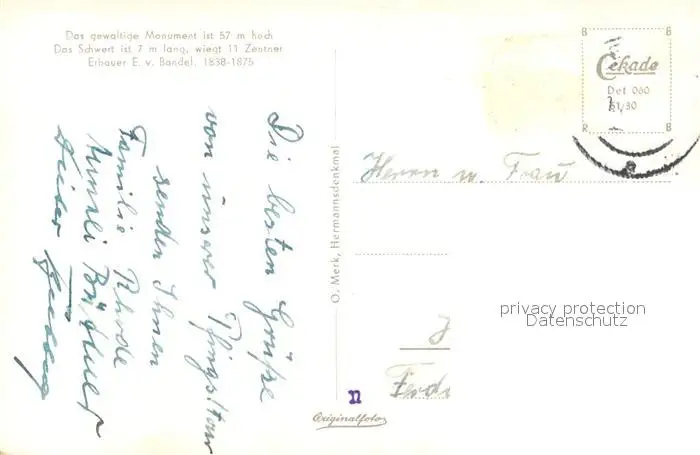 Das gewaltige Monument ist 57 m hoch
Das Schwert ist 7 m lang, wiegt 11 Zentner
Erbauer E. v. Bandel, 1838-1875
Die besten Grüße
von unserer Pfingsttour
senden Ihnen
Familie Rhode
O. Merk, Hermannsdenkmal
B B
Cekade
Det 060
R B
Herrn u. Frau
privacy protection
Datenschutz
Ferd
n
Originalfoto